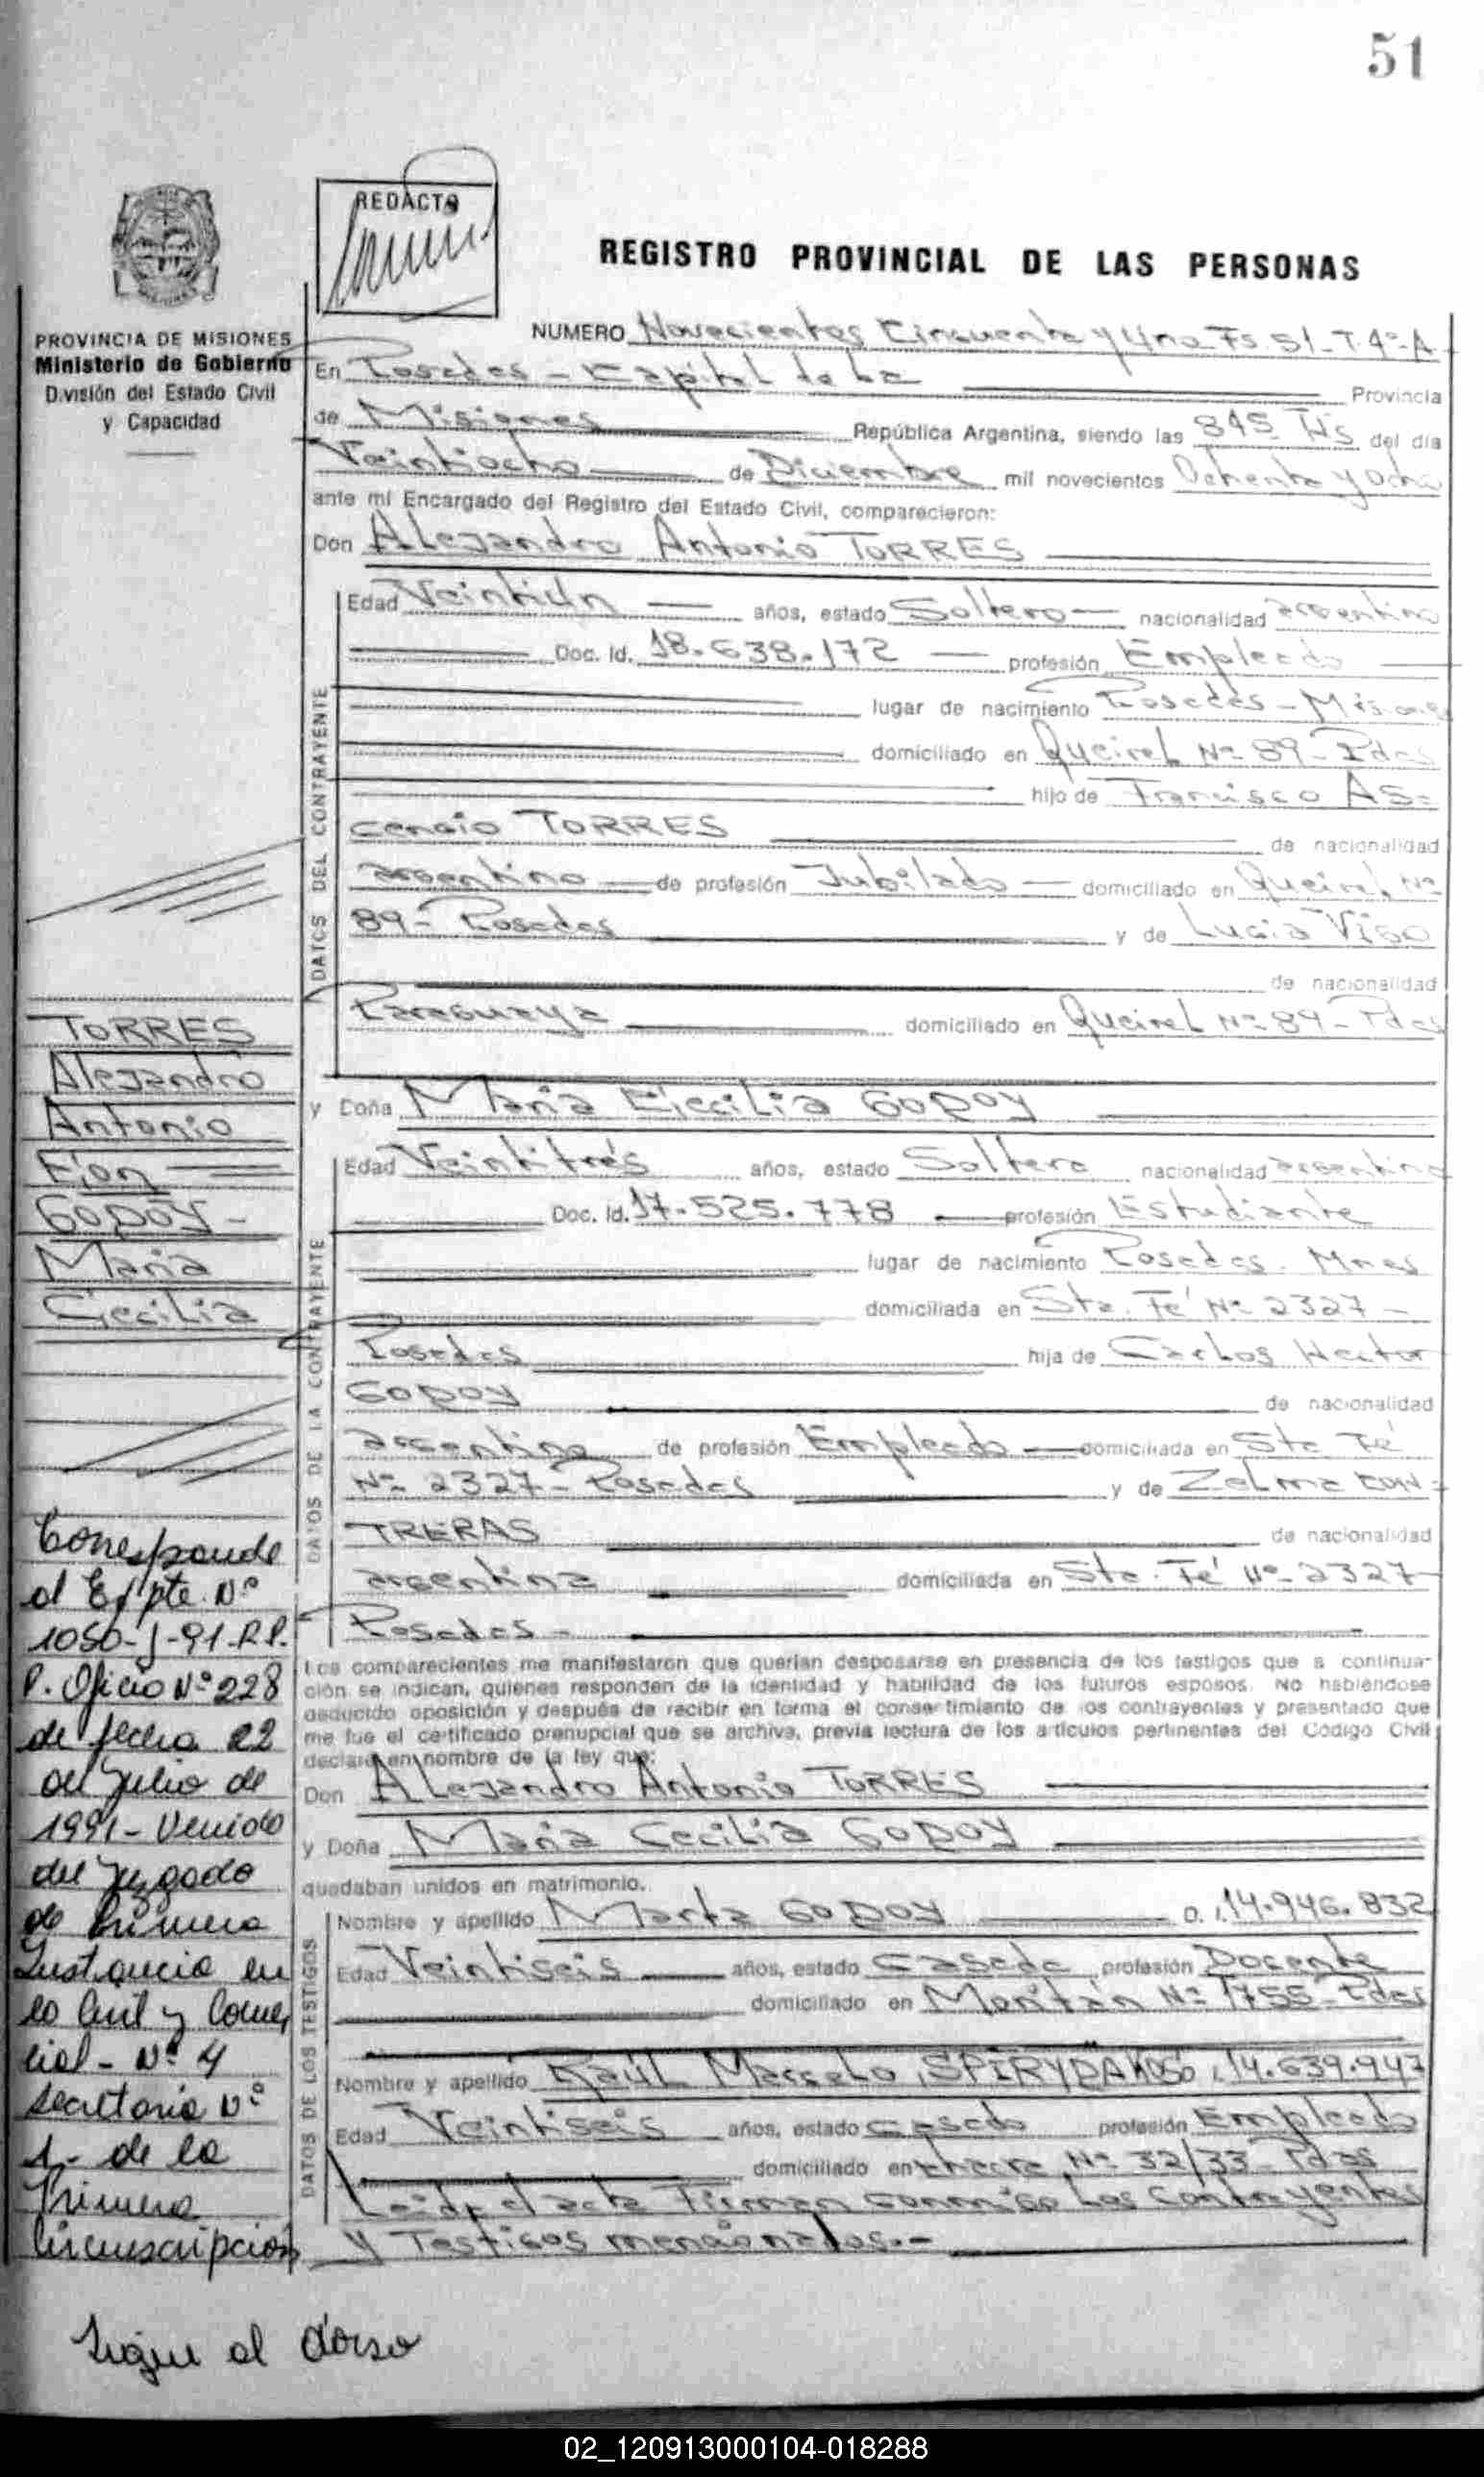 51
REDACTO
REGISTRO PROVINCIAL DE LAS PERSONAS
PROVINCIA DE MISIONES
Ministerio de Gobierno
División del Estado Civil
y Capacidad
NUMERO Novecientos Cincuenta y Uno Fs 51 - T. 4º - A
En Posadas - Capital de La Provincia
de Misiones República Argentina, siendo las 845 Hs del día
Veintiocho de Diciembre mil novecientos Ochenta y Ocho
ante mí Encargado del Registro del Estado Civil, comparecieron:
Don Alejandro Antonio TORRES
DATOS DEL CONTRAYENTE
Edad Veintiún años, estado Soltero nacionalidad argentino
Doc. Id. 18.638.172 profesión Empleado
lugar de nacimiento Posadas - Misiones
domiciliado en Queirel Nº 89 - Pdas
hijo de Francisco As=
cencio TORRES de nacionalidad
argentino de profesión Jubilado domiciliado en Queirel Nº
89 - Posadas y de Lucia Viso
de nacionalidad
Paraguaya domiciliado en Queirel Nº 89 - Pdas
y Doña Maria Cecilia GODOY
DATOS DE LA CONTRAYENTE
Edad Veintitrés años, estado Soltera nacionalidad argentina
Doc. Id. 17.525.778 profesión Estudiante
lugar de nacimiento Posadas. Mnes
domiciliada en Sta. Fé Nº 2327 -
Posadas hija de Carlos Hector
GODOY de nacionalidad
argentino de profesión Empleado domiciliada en Sta Fé
Nº 2327 - Posadas y de Zelma CON=
TRERAS de nacionalidad
argentina domiciliada en Sta. Fé Nº 2327
Posadas -
Los comparecientes me manifestaron que querían desposarse en presencia de los testigos que a continua-
ción se indican, quienes responden de la identidad y habilidad de los futuros esposos. No habiéndose
deducido oposición y después de recibir en forma el consentimiento de los contrayentes y presentado que
me fue el certificado prenupcial que se archiva, previa lectura de los artículos pertinentes del Código Civil
declaro en nombre de la ley que:
Don Alejandro Antonio TORRES
y Doña Maria Cecilia GODOY
quedaban unidos en matrimonio.
DATOS DE LOS TESTIGOS
Nombre y apellido Marta GODOY D. I. 14.946.832
Edad Veintiseis años, estado Casada profesión Docente
domiciliado en Nº 1755 - Pdas
Nombre y apellido Raúl Marcelo 14.639.947
Edad Veintiseis años, estado casado profesión Empleado
domiciliado en Nº 32/33 - Pdas
Leída el acta Firman conmigo Los Contrayentes
y Testigos mencionados.-
TORRES
Alejandro
Antonio
Con
GODOY -
Maria
Cecilia
Corresponde
al Expte. Nº
1050-J-91-R.P.
P. Oficio Nº 228
de fecha 22
de Julio de
1991 - Venido
del Juzgado
de Primera
Instancia en
lo Civil y Comer
cial - Nº 4
Secretaria Nº
1 - de la
Primera
Circunscripcion
Sigue al dorso
02_120913000104-018288